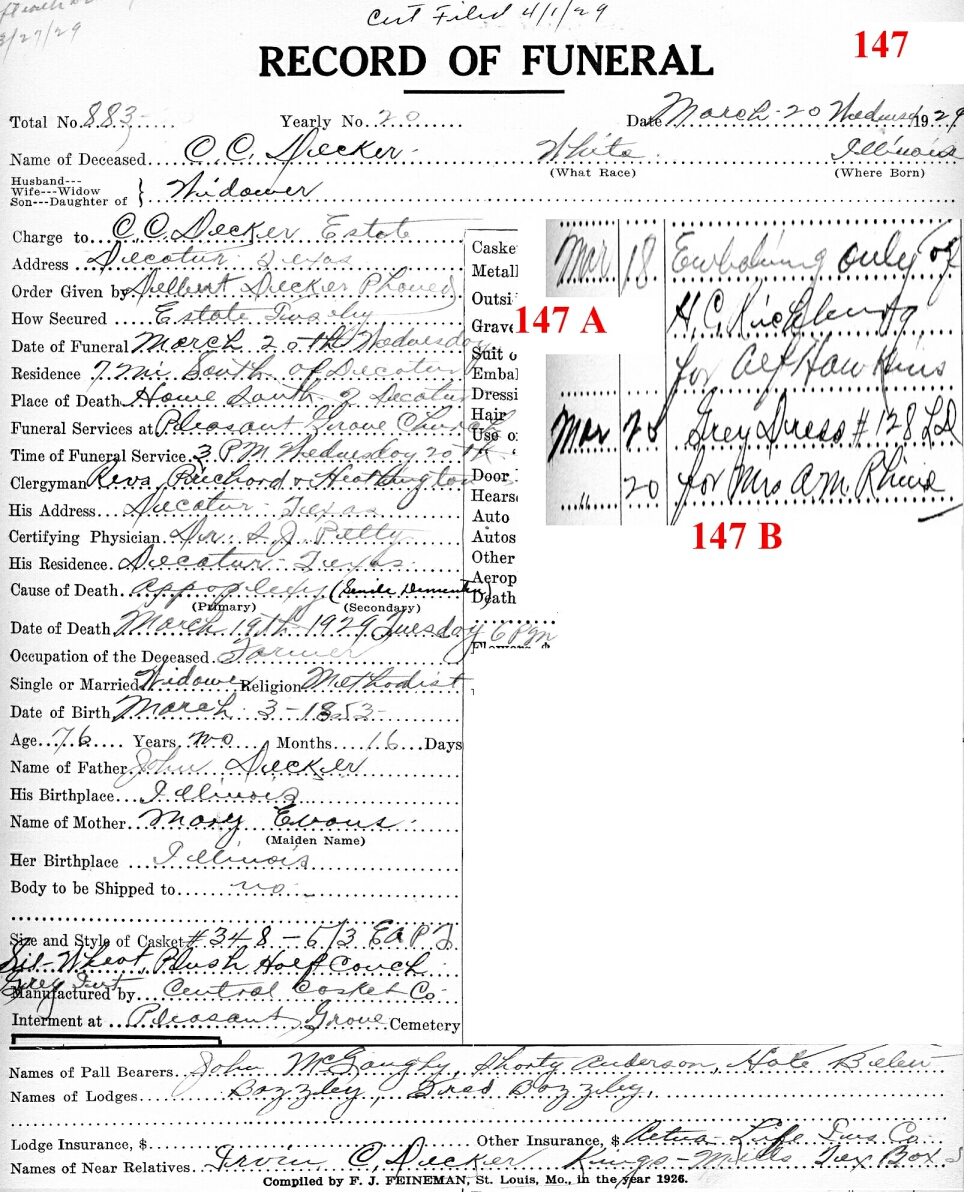 3/27/29
Cert Filed 4/1/29
RECORD OF FUNERAL
147
Total No. 883 Yearly No. 20 Date March 20 1929
Name of Deceased C. C. Decker White Illinois
(What Race) (Where Born)
Husband---
Wife---Widow
Son---Daughter of } Widower
Charge to C. C. Decker Estate
Address Decatur Texas
Order Given by Delbert Decker Phoned
How Secured Estate
Date of Funeral March 20th Wednesday
Residence 7 Mi South of Decatur
Place of Death Home South of Decatur
Funeral Services at Pleasant Grove Church
Time of Funeral Service 3 PM Wednesday 20th
Clergyman Revs.
His Address Decatur Texas
Certifying Physician Dr. S. J. Petty
His Residence Decatur Texas
Cause of Death Appoplexy (Senile Dementia)
(Primary) (Secondary)
Date of Death March 19th 1929 Tuesday 6 PM
Occupation of the Deceased Farmer
Single or Married Widower Religion Methodist
Date of Birth March 3-1853
Age 76 Years no Months 16 Days
Name of Father John Decker
His Birthplace Illinois
Name of Mother Mary Evans
(Maiden Name)
Her Birthplace Illinois
Body to be Shipped to no
Size and Style of Casket #348 - 6/3
Plush Half Couch
Grey
Manufactured by Central Casket Co
Interment at Pleasant Grove Cemetery
Caske
Metall
Outsi
Grave
Suit o
Embal
Dressi
Hair
Use o
Door
Hearse
Auto
Autos
Other
Aerop
Death
Mar 18 Embalming only of
H. C.
for Alf Hawkins
147 A
Mar 20 Grey Dress #128 LD
" 20 for Mrs A M Rhine
147 B
Names of Pall Bearers John McGaughy, Shorty Anderson,
Names of Lodges Bozzley, Fred Bozzley,
Lodge Insurance, $ Other Insurance, $ Aetna Life Ins. Co.
Names of Near Relatives Irvin C. Decker Kings-Mills Tex Box
Compiled by F. J. FEINEMAN, St. Louis, Mo., in the year 1926.